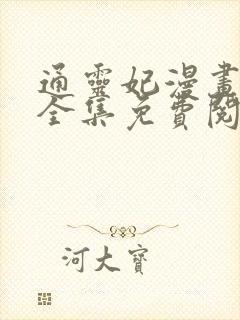 通靈妃漫畫
全集免費閱
河大寶